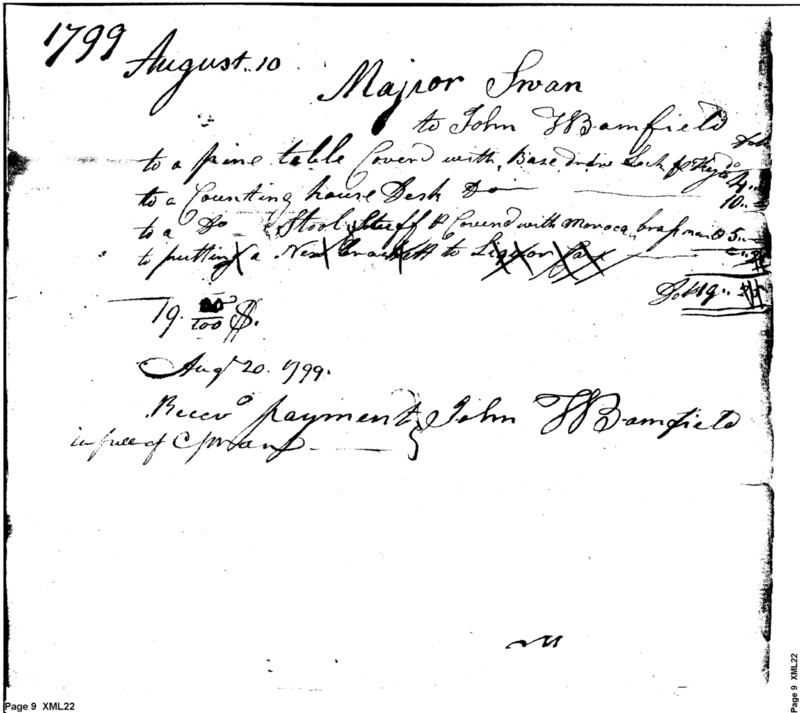 1799 August. 10
Major Swan
to John W Bamfield
Dolls
to a pine table Coverd with, Base drawe Lock & Key 4..
to a Counting house Desk Do 10..
to a Do Stool Stuff & Coverd with Moroca, brass nails 5..
to putting a New to Liquor Case
Dols 19..
19. 00/100 $.
Augt 20. 1799.
Reccvd payment John W Bamfield
in full of
Page 9 XML22
Page 9 XML22